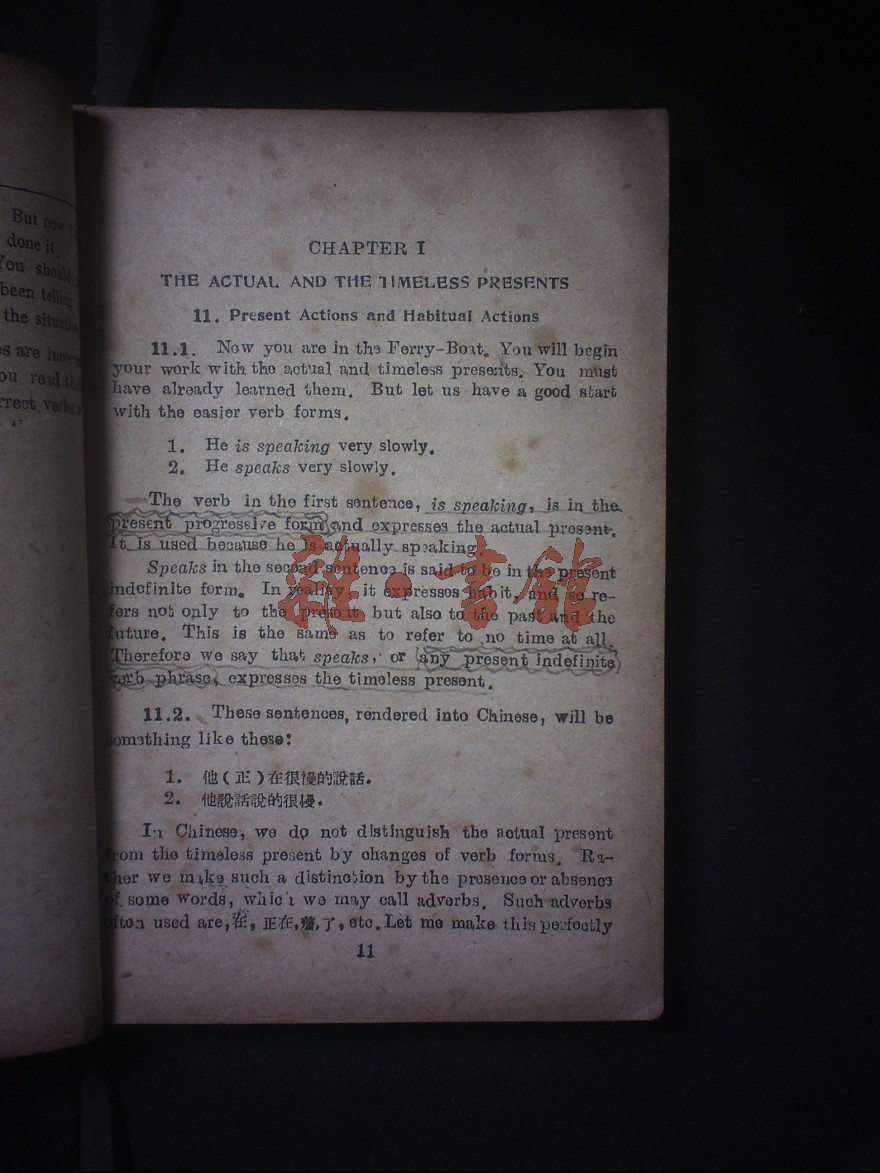 But now
done it.
You should
been telling
the situation
s are
ou read
rrect verbs
CHAPTER I
THE ACTUAL AND THE TIMELESS PRESENTS
11. Present Actions and Habitual Actions
11.1. Now you are in the Ferry-Boat. You will begin
your work with the actual and timeless presents. You must
have already learned them. But let us have a good start
with the easier verb forms.
1. He is speaking very slowly.
2. He speaks very slowly.
The verb in the first sentence, is speaking, is in the
present progressive form and expresses the actual present.
It is used because he is actually speaking.
Speaks in the second sentence is said to be in the present
indefinite form. In reality, it expresses habit, and so re-
fers not only to the present but also to the past and the
future. This is the same as to refer to no time at all.
Therefore we say that speaks, or any present indefinite
verb phrase, expresses the timeless present.
11.2. These sentences, rendered into Chinese, will be
something like these:
1. 他(正)在很慢的說話.
2. 他說話說的很慢.
In Chinese, we do not distinguish the actual present
from the timeless present by changes of verb forms. Ra-
ther we make such a distinction by the presence or absence
of some words, which we may call adverbs. Such adverbs
often used are, 在, 正在, 着, 了, etc. Let me make this perfectly
11
雜·書館